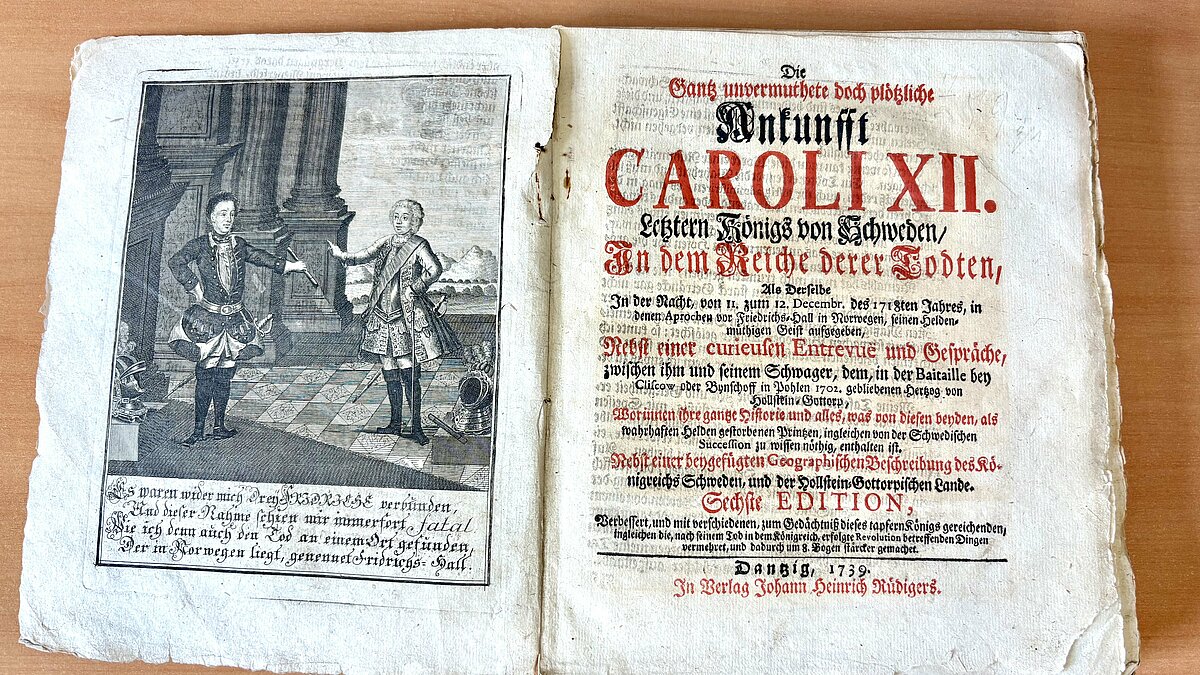 Es waren wider mich drey FRIDRICHE verbunden,
Und dieser Nahme schien mir immerfort fatal
Wie ich denn auch den Tod an einem Ort gefunden,
Der in Norwegen liegt, genennet Fridrichs-Hall.
Die
Gantz unvermuthete doch plötzliche
Ankunfft
CAROLI XII.
Letztern Königs von Schweden/
In dem Reiche derer Todten,
Als Derselbe
In der Nacht, von 11. zum 12. Decembr. des 1718ten Jahres, in
denen Aprochen vor Friedrichs-Hall in Norwegen, seinen Helden-
müthigen Geist aufgegeben,
Nebst einer curieusen Entrevuë und Gespräche,
zwischen ihm und seinem Schwager, dem, in der Baitaille bey
Cliscow oder Bynschoff in Pohlen 1702. gebliebenen Hertzog von
Hollstein-Gottorp,
Worinnen ihre gantze Historie und alles, was von diesen beyden, als
wahrhafften Helden gestorbenen Printzen, ingleichen von der Schwedischen
Succession zu wissen nöthig, enthalten ist.
Nebst einer beygefügten Geographischen Beschreibung des Kö-
nigreichs Schweden, und der Hollstein-Gottorpischen Lande.
Sechste EDITION,
Verbessert, und mit verschiedenen, zum Gedächtniß dieses tapfern Königs gereichenden,
ingleichen die, nach seinem Tod in dem Königreich, erfolgte Revolution betreffenden Dingen
vermehret, und dadurch um 8. Bogen stärcker gemachet.
Dantzig, 1739.
In Verlag Johann Heinrich Rüdigers.